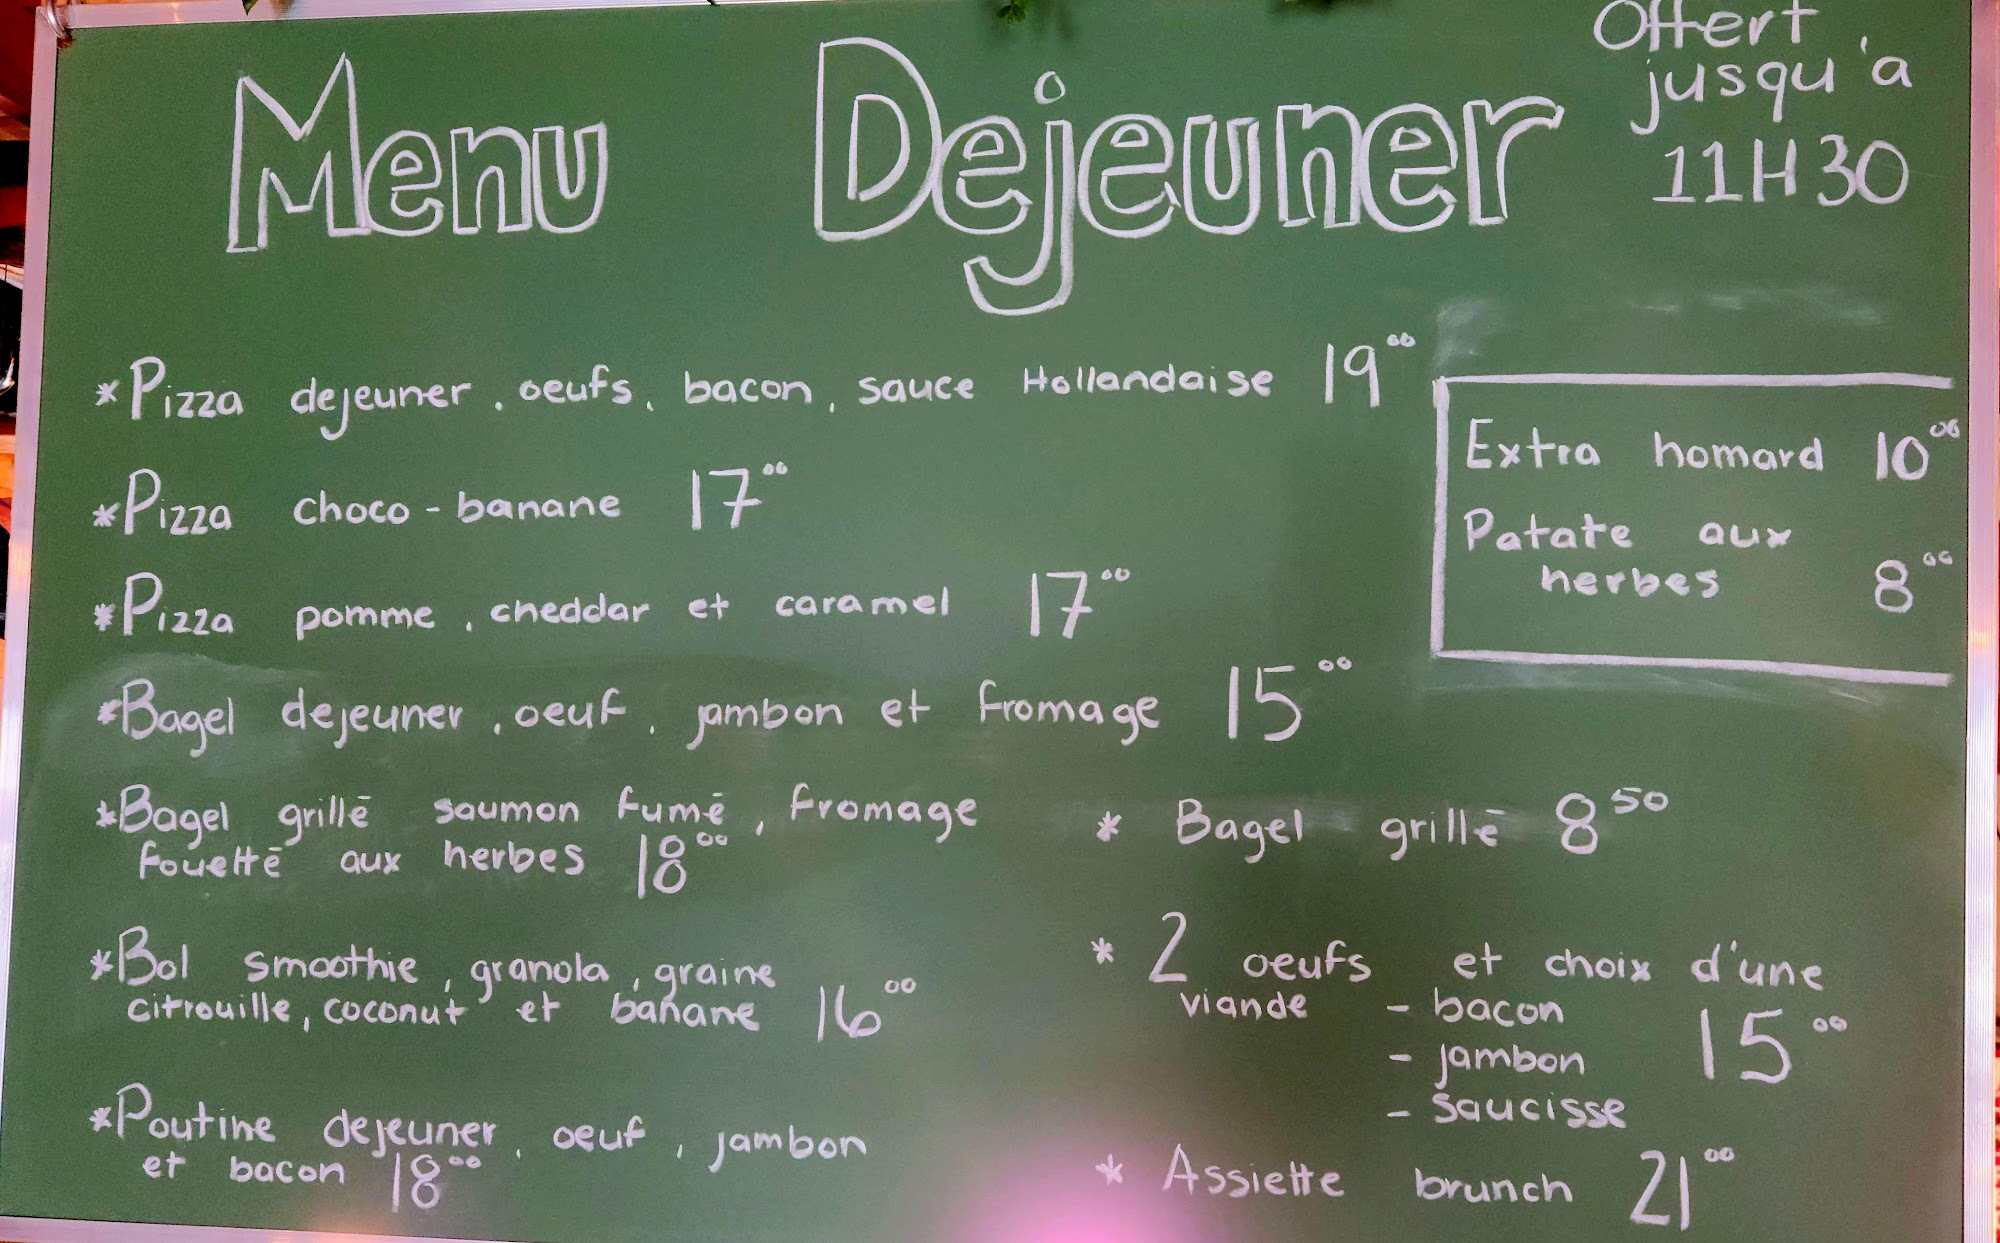 Menu Dejeuner
Offert
jusqu'à
11H30
*Pizza dejeuner, oeufs, bacon, sauce Hollandaise 19⁰⁰
*Pizza choco-banane 17⁰⁰
*Pizza pomme, cheddar et caramel 17⁰⁰
*Bagel dejeuner, oeuf, jambon et fromage 15⁰⁰
*Bagel grillé saumon fumé, fromage
fouetté aux herbes 18⁰⁰
*Bol smoothie, granola, graine
citrouille, coconut et banane 16⁰⁰
*Poutine dejeuner, oeuf, jambon
et bacon 18⁰⁰
Extra homard 10⁰⁰
Patate aux
herbes 8⁰⁰
* Bagel grillé 8⁵⁰
* 2 oeufs et choix d'une
viande - bacon
- jambon 15⁰⁰
- saucisse
* Assiette brunch 21⁰⁰